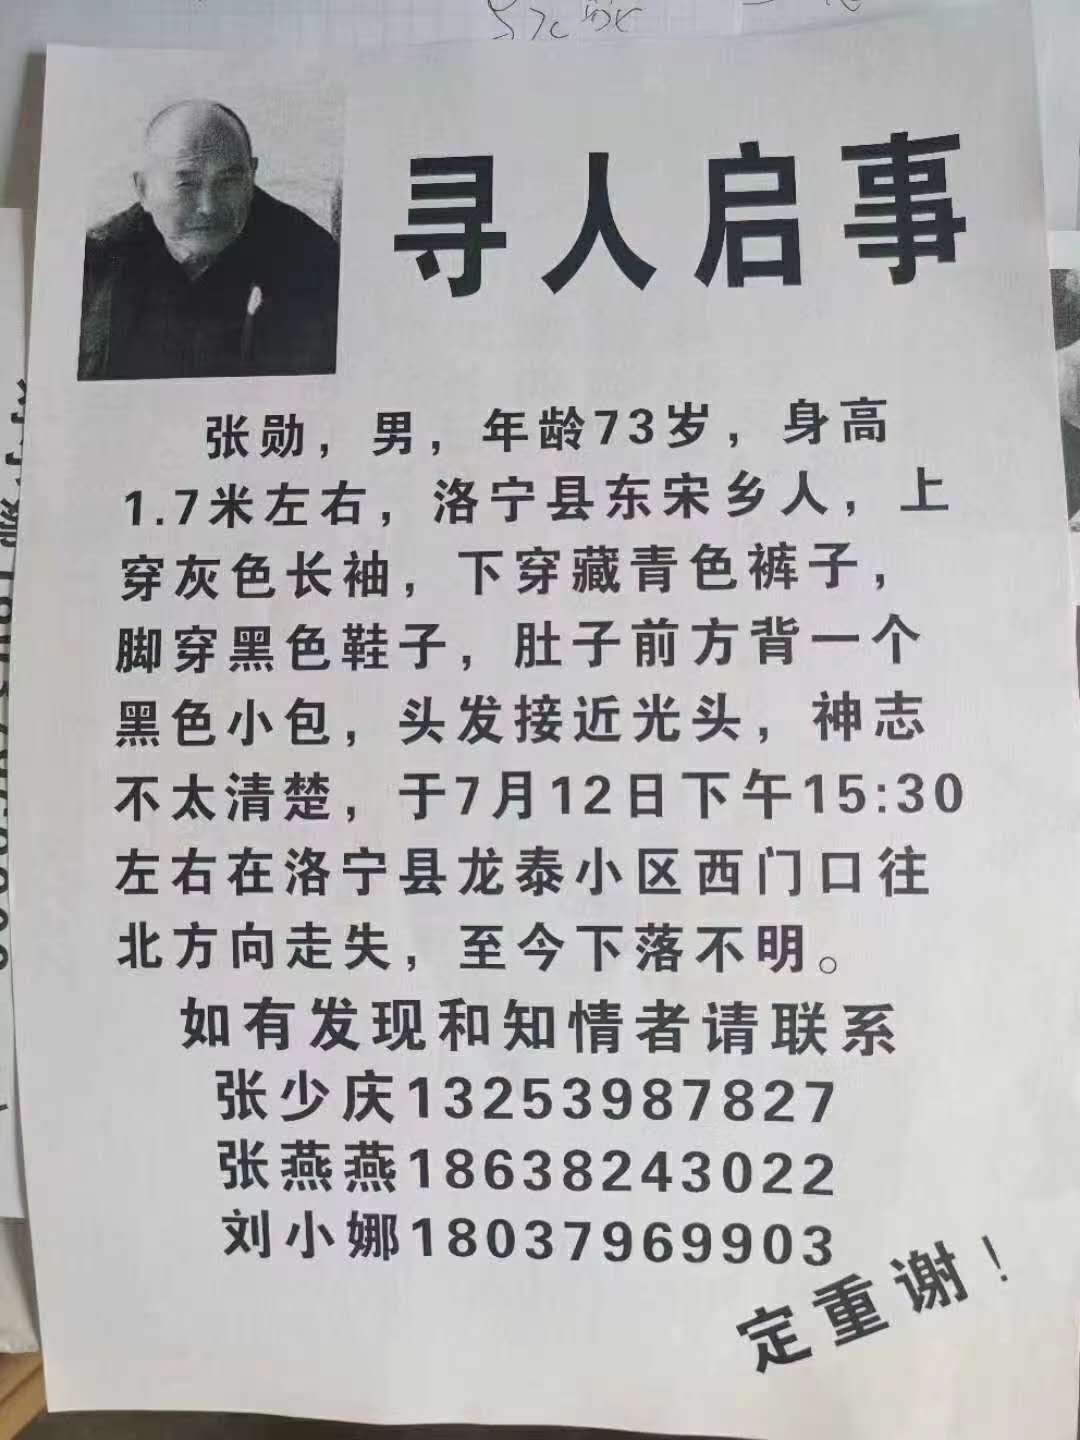 寻人启事
张勋，男，年龄73岁，身高
1.7米左右，洛宁县东宋乡人，上
穿灰色长袖，下穿藏青色裤子，
脚穿黑色鞋子，肚子前方背一个
黑色小包，头发接近光头，神志
不太清楚，于7月12日下午15:30
左右在洛宁县龙泰小区西门口往
北方向走失，至今下落不明。
如有发现和知情者请联系
张少庆13253987827
张燕燕18638243022
刘小娜18037969903
定重谢！